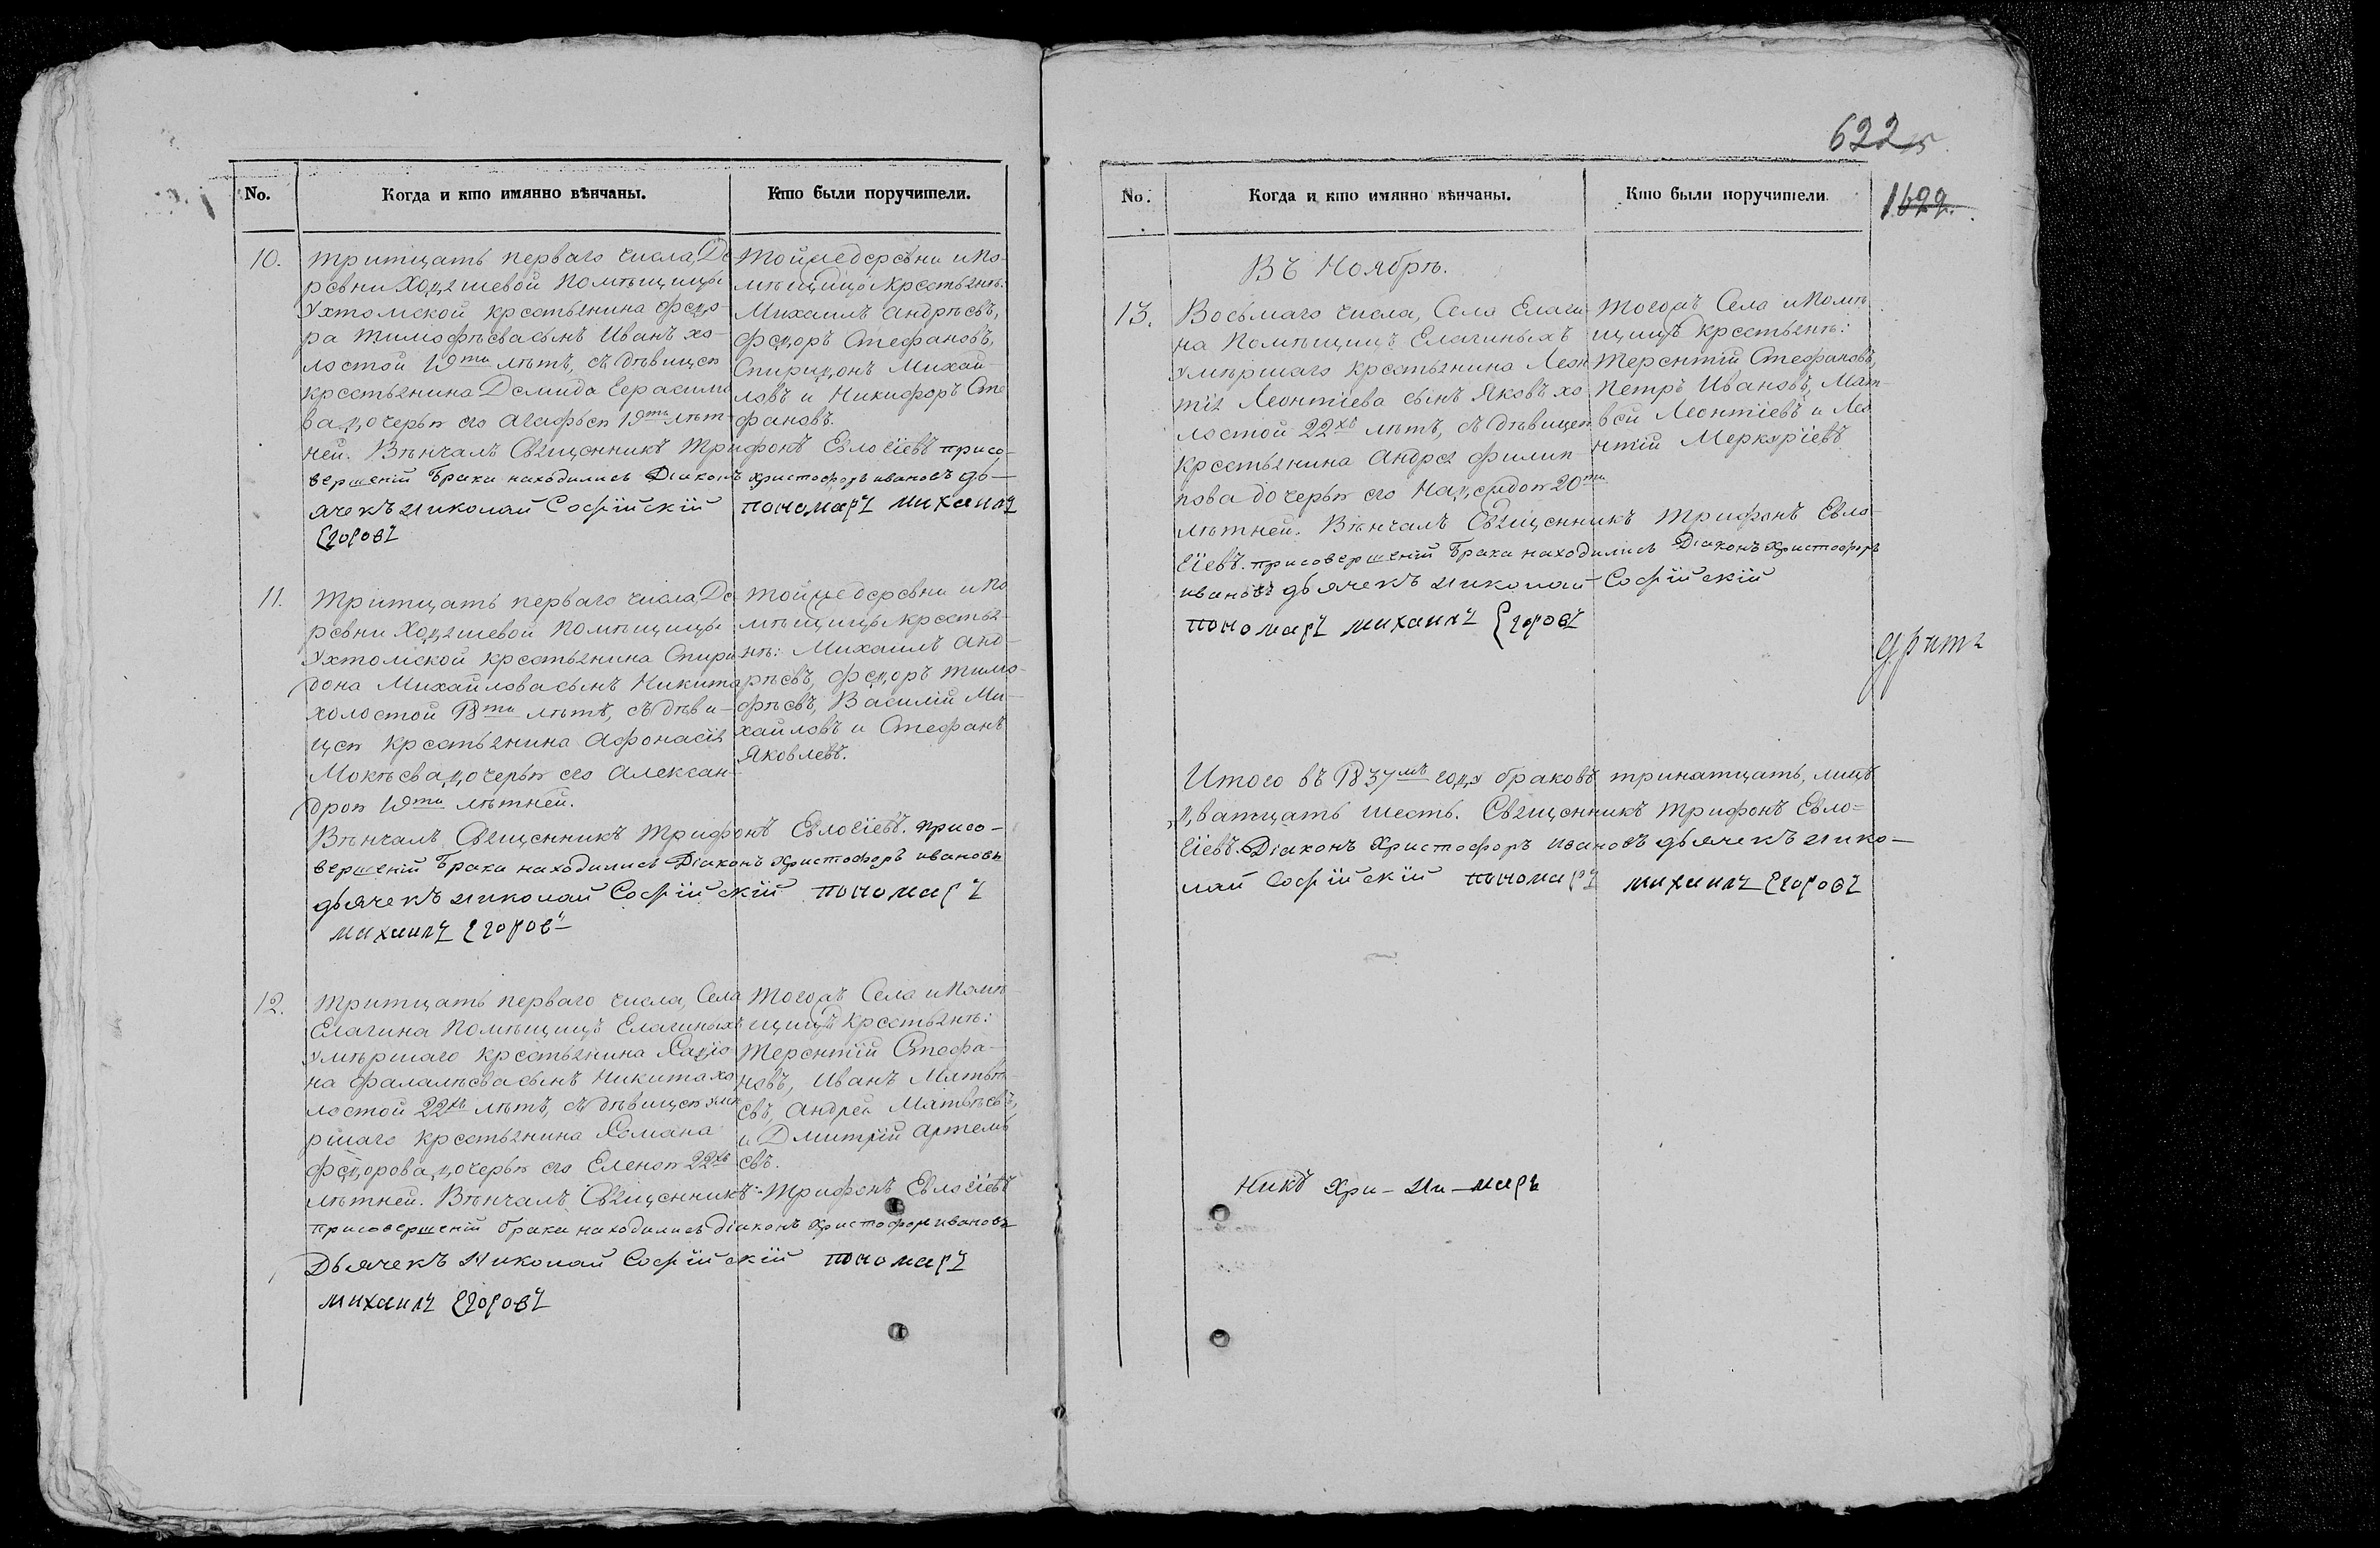 No.
Когда и кто имянно вѣнчаны.
Кто были поручители.
10.
тритцать перваго числа, Де
ревни Ходяшевой Помѣщицы
Ухтомской крестьянина Федо
ра Тимофѣева сынъ Иванъ хо-
лостой 19ти лѣтъ, съ дѣвицею
крестьянина Демида Герасимо
ва дочерью его Агафьею 19ти лѣт-
ней. Вѣнчалъ Священникъ Трифонъ Евлогіевъ присо-
вершеніи Брака находились Діаконъ Христофоръ ивановъ дь-
ячекъ николай Софійскій пономарь михаилъ
Егоровъ
Тойже деревни и По-
мѣщицы Крестьянѣ:
Михаилъ Андрѣевъ,
Федоръ Стефановъ,
Спиридонъ Михай-
ловъ и Никифоръ Сте
фановъ.
11.
Тритцать перваго числа, Де
ревни Ходяшевой Помѣщицы
Ухтомской крестьянина Спири
дона Михайлова сынъ Никита
холостой 18ти лѣтъ, съ дѣви-
цею крестьянина Афонасія
Мокѣева дочерью его Алексан-
дрою 19ти лѣтней.
Вѣнчалъ Священникъ Трифонъ Евлогіевъ. присо-
вершеніи Брака находились Діаконъ Христофоръ ивановъ
дьячекъ николай Софійскій пономарь
михаилъ Егоровъ
Тойже деревни и По
мѣщицы крестья-
нѣ: Михаилъ Анд-
рѣевъ, Федоръ Тимо-
фѣевъ, Василій Ми-
хайловъ и Стефанъ
Яковлевъ.
12.
Тритцать перваго числа, Села
Елагина Помѣщицъ Елагиныхъ
умѣршаго крестьянина Радіо
на Фалалѣева сынъ Никита хо
лостой 22хъ лѣтъ, съ дѣвицею умѣ
ршаго крестьянина Романа
Федорова дочерью его Еленою 22хъ
лѣтней. Вѣнчалъ Священникъ Трифонъ Евлогіевъ
присовершеніи брака находились діаконъ Христофоръ ивановъ
Дьячекъ Николай Софійскій пономарь
михаилъ Егоровъ
Тогожъ Села и Помѣ-
щицъ крестьянѣ:
Терентій Стефа-
новъ, Иванъ Матвѣ
евъ, Андрей Матвѣевъ,
и Дмитрій Артемь
евъ.
622
1622.
No.
Когда и кто имянно вѣнчаны.
Кто были поручители.
Въ Ноябрѣ.
13.
Восьмаго числа, Села Елаги
на Помѣщицъ Елагиныхъ
умѣршаго крестьянина Леон
тія Леонтіева сынъ Яковъ хо
лостой 22хъ лѣтъ, съ дѣвицею
крестьянина Андрея Филип-
пова дочерью его Надеждою 20ти
лѣтней. Вѣнчалъ Священникъ Трифонъ Евло-
гіевъ. присовершеніи Брака находились Діаконъ Христофоръ
ивановъ дьячекъ николай Софійскій
пономарь михаилъ Егоровъ
Тогожъ Села и Помѣ
щицъ крестьянѣ:
Терентій Стефановъ,
Петръ Ивановъ, Мат-
вей Леонтіевъ и Лео
нтій Меркуріевъ
Итого въ 1837мъ году браковъ тринатцать, лицъ
дватцать шесть. Священникъ Трифонъ Евло-
гіевъ. Діаконъ Христофоръ ивановъ дьячекъ нико-
лай Софійскій пономарь михаилъ Егоровъ
никъ Хри- Ни- марь